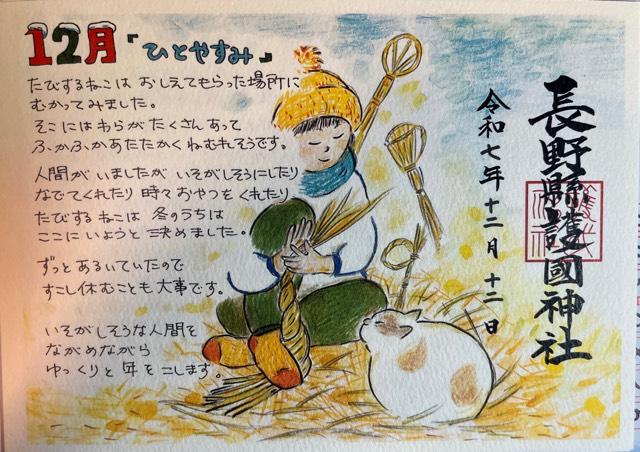 12月「ひとやすみ」
たびするねこは おしえてもらった場所に
むかってみました。
そこにはわらがたくさんあって
ふかふかあたたかくねむれそうです。
人間がいましたが いそがしそうにしたり
なでてくれたり 時々おやつをくれたり
たびするねこは 冬のうちは
ここにいようと決めました。
ずっとあるいていたので
すこし休むことも大事です。
いそがしそうな人間を
ながめながら
ゆっくりと年をこします。
長野縣護國神社
令和七年十二月十二日